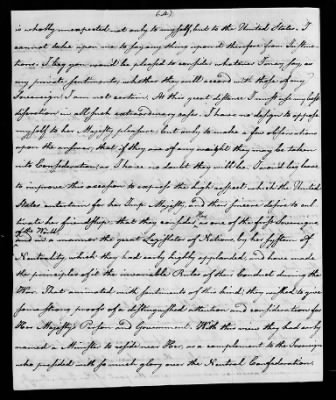 (4)
is wholly unexpected not only to myself, but to the United States. I
cannot take upon me to say any thing upon it therefore from Instruc-
tions. I beg you wou'd be pleased to consider whatever I may say, as
my private sentiments, whether they will accord with those of my
Sovereign I am not certain. At this great distance I must use my best
discretion in all such extraordinary cases. I have no design to oppose
myself to her Majesty's pleasure, but only to make a few observations
upon the answer, that if they are of any weight they may be taken
into Consideration, as I have no doubt they will be. I would beg leave
to improve this occasion to express the high respect which the United
States entertain for her Imp. Majesty, and their sincere desire to cul-
tivate her friendship: that they consider Her as one of the first Sovereigns
of the World
and as in a manner the great Legislator of Nations, by her System of
Neutrality, which they had early highly applauded, and have made
the principles of it the invariable Rules of their Conduct during the
War. That animated with sentiments of this kind they wished to give
some strong proofs of a distinguished attention and consideration for
Her Majesty's Person and Government. With this view they had early
named a Minister to reside near Her, as a complement to the Sovereign
who presided with so much glory over the Neutral Confederation